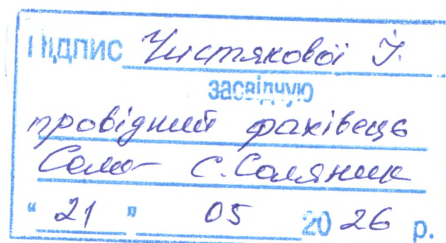 Підпис Чистякової І.
засвідчую
провідний фахівець
С. Соляник
" 21 " 05 20 26 р.